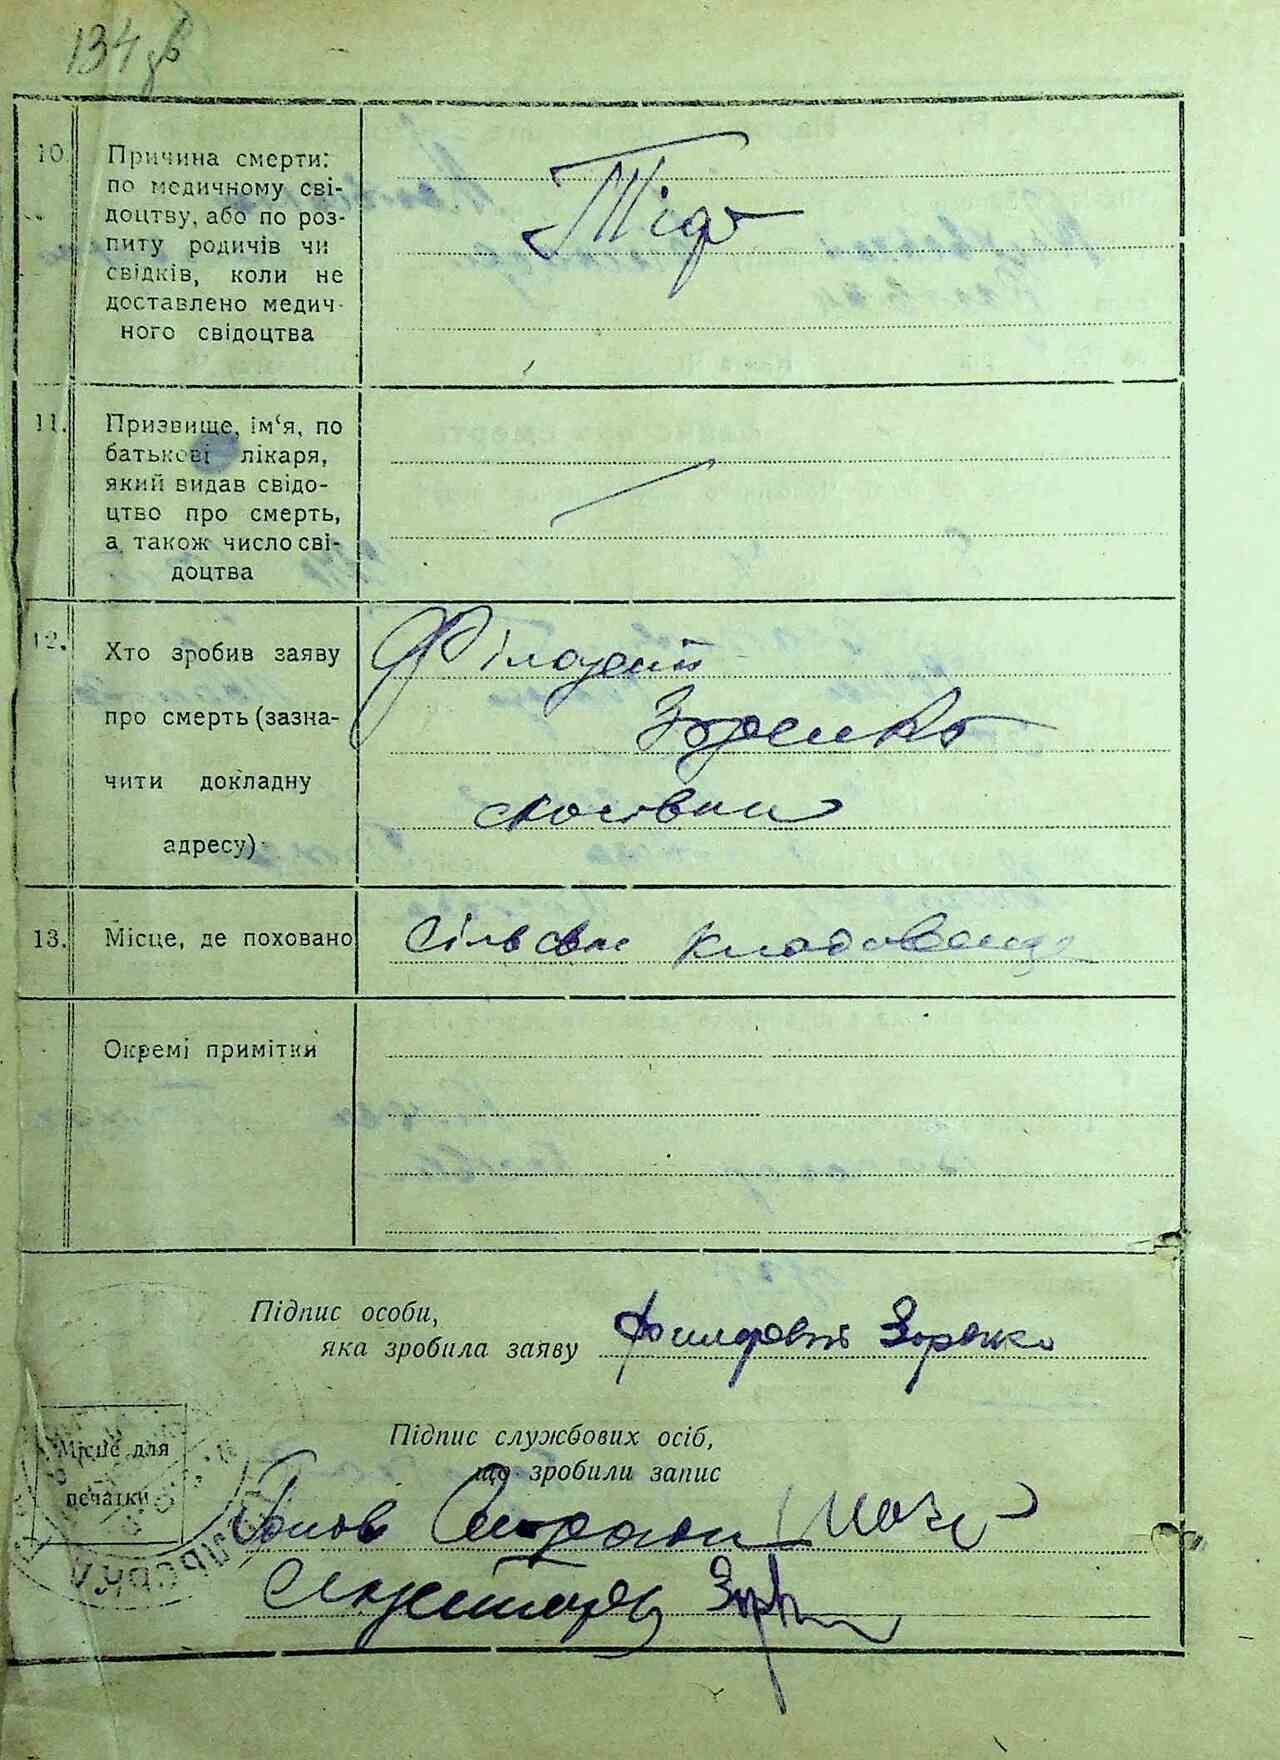 134 зв
10. Причина смерти:
по медичному сві-
доцтву, або по роз-
питу родичів чи
свідків, коли не
доставлено медич-
ного свідоцтва
11. Призвище, ім‘я, по
батькові лікаря,
який видав свідо-
цтво про смерть,
а також число сві-
доцтва
12. Хто зробив заяву
про смерть (зазна-
чити докладну
адресу)
Зоренко
13. Місце, де поховано
Сільске кладовище
Окремі примітки
Підпис особи,
яка зробила заяву Зоренко
Місце для
печатки
Підпис службових осіб,
що зробили запис
Голов
Секретарь